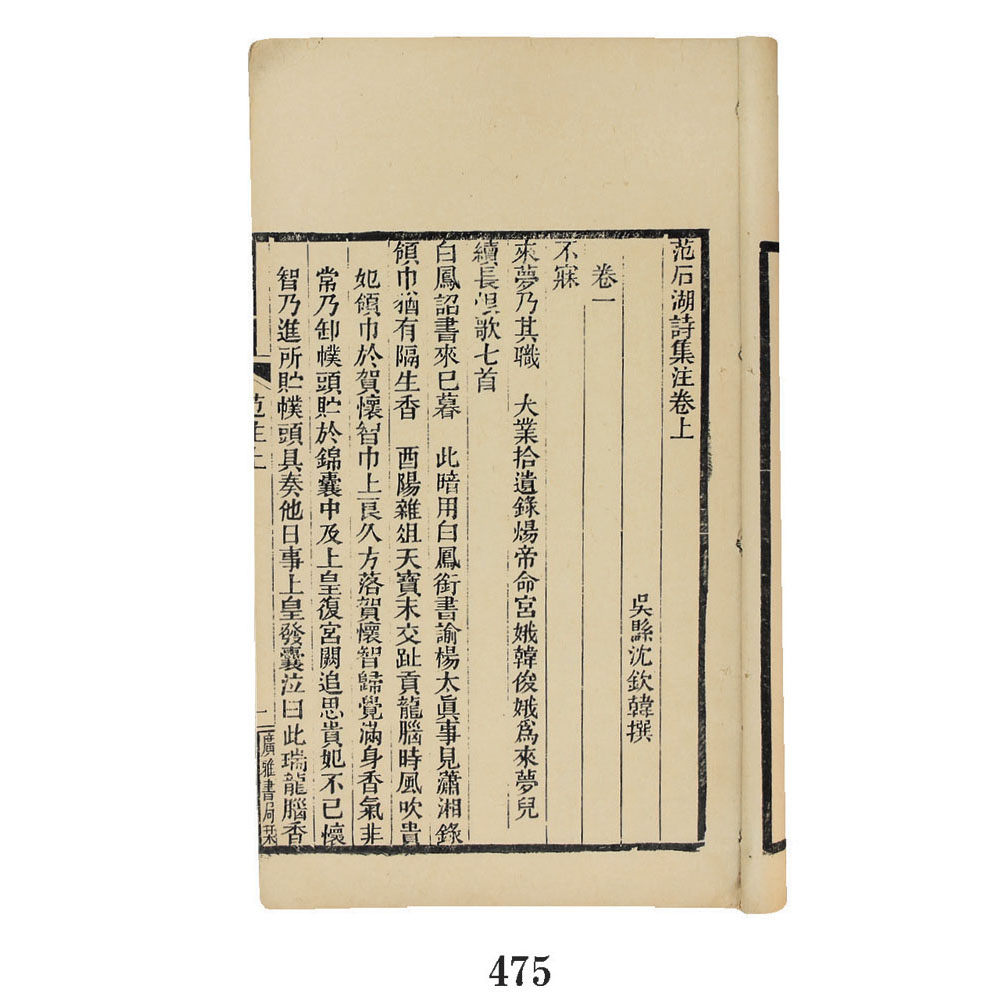 范石湖詩集注卷上
吳縣沈欽韓撰
卷一
不寐
來夢乃其職　大業拾遺錄煬帝命宮娥韓俊娥爲來夢兒
續長恨歌七首
白鳳詔書來巳暮　此暗用白鳳銜書諭楊太眞事見瀟湘錄
領巾猶有隔生香　酉陽雜俎天寶末交趾貢龍腦時風吹貴
妃領巾於賀懷智巾上良久方落賀懷智歸覺滿身香氣非
常乃卸幞頭貯於錦囊中及上皇復宮闕追思貴妃不已懷
智乃進所貯幞頭具奏他日事上皇發囊泣曰此瑞龍腦香
范注上
一
廣雅書局栞
475